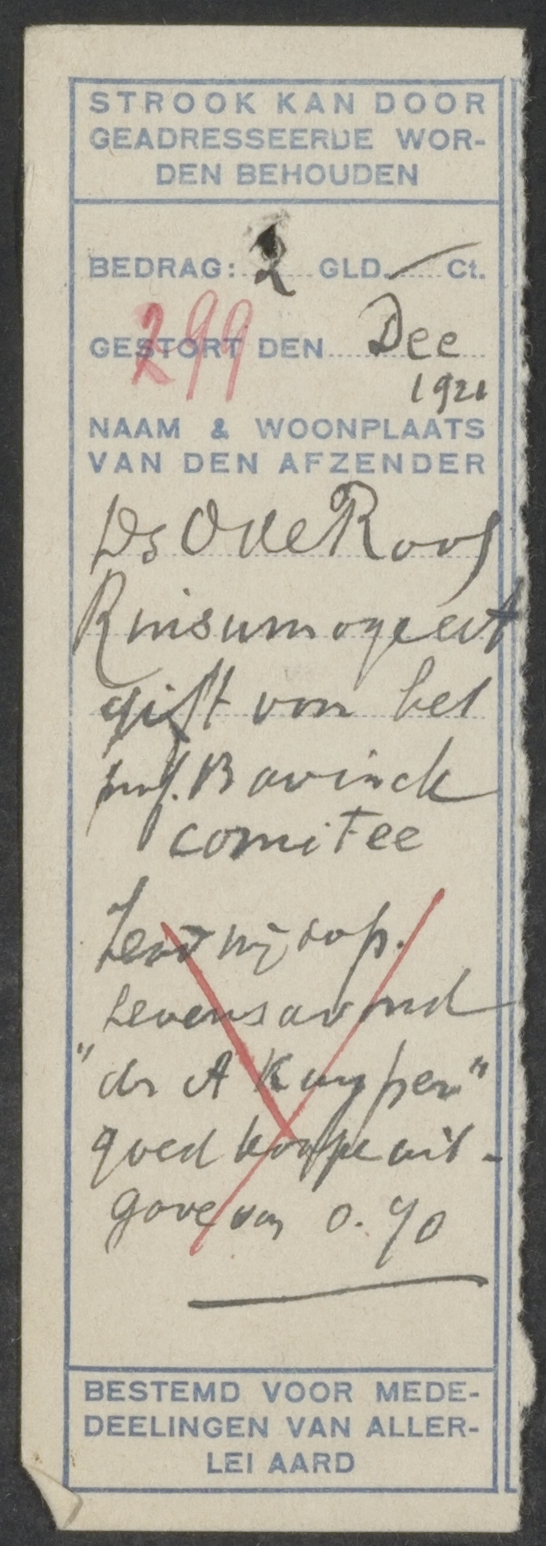 STROOK KAN DOOR
GEADRESSEERDE WOR-
DEN BEHOUDEN
BEDRAG: 2 GLD. — Ct.
299
GESTORT DEN Dec
1921
NAAM & WOONPLAATS
VAN DEN AFZENDER
Ds O de Roos
Rinsumageest
gift voor het
prof. Bavinck
comitee
Zend mij s.v.p.
Levensavond
"dr A Kuyper"
goedkoope uit-
gave van 0.90
BESTEMD VOOR MEDE-
DEELINGEN VAN ALLER-
LEI AARD